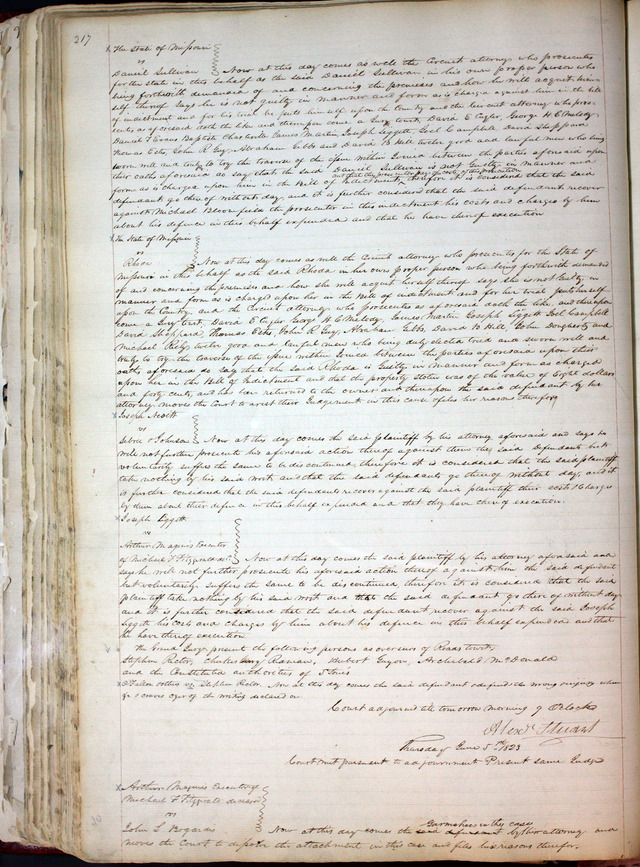 217
The State of Missouri
vs
Daniel Sullivan Now at this day comes as well the Circuit attorney who prosecutes
for the state in this behalf as the said Daniel Sullivan in his own proper person who
being forthwith demanded of and concerning the premises and how he will acquit him
self thereof says he is not guilty in manner and form as is charged against him in the bill
of indictment and for his trial he puts himself upon the County and the Circuit attorney who pros
ecutes as aforesaid doth the like and thereupon come a Jury towit, David E Cuyler, George H C Melody
Daniel Evans Baptiste Charleville James Martin Joseph Liggett Joel Campbell David Sheppard
Thomas Estes, John R Guy, Abraham Gibbs and David B Hill twelve good and lawful men who being
sworn well and truly to try the traverse of the issue within Joined between the parties aforesaid upon
their oaths aforesaid do say that the said Daniel Sullivan is not Guilty in manner and
form as is charged upon him in the Bill of Indictment therefore it is considered that the said
defendant go thereof without day, and it is further considered that the said defendant recover
against Michael the prosecutor in this indictment his costs and charges by him
about his defence in this behalf expended and that he have thereof execution
The State of Missouri
vs
Rhoda Now at this day comes as well the Circuit attorney who prosecutes for the State of
Missouri in this behalf as the said Rhoda in her own proper person who being forthwith demanded
of and concerning the premises and how she will acquit herself thereof says she is not Guilty in
manner and form as is charged upon her in the Bill of indictment and for her trial puts herself
upon the Country, and the Circuit attorney who prosecutes as aforesaid doth the like, and thereupon
come a Jury towit, David E Cuyler George H C Melody James Martin Joseph Liggett Joel Campbell
David Sheppard Thomas Estes, John R Guy Abraham Gibbs David B Hill, John Dougherty and
Michael twelve good and lawful men who being duly elected tried and sworn well and
truly to try the traverse of the issue within Joined between the parties aforesaid upon their
oaths aforesaid do say that the said Rhoda is Guilty in manner and form as charged
upon her in the Bill of Indictment and that the property stolen was of the value of Eight dollars
and forty cents, and has been returned to the owner and thereupon the said defendant by his
attorney moves the Court to arrest their Judgement in this case & files his reasons therefore
Joseph
vs
& Johnson Now at this day comes the said plaintiff by his attorney aforesaid and says he
will not further prosecute his aforesaid action thereof against them the said Defendants but
voluntarily suffers the same to be discontinued, therefore it is considered that the said plaintiff
take nothing by his said writ and that the said defendants go thereof without day, and it
is further considered that the said defendants recover against the said plaintiff their costs & Charges
by them about their defence in this behalf expended and that they have thereof execution
Joseph Liggett
vs
Arthur Maginis Executor
of Michael F Fitzgerald decd Now at this day comes the said plaintiff by his attorney aforesaid and
says he will not further prosecute his aforesaid action thereof against him the said defendant
but voluntarily suffers the same to be discontinued, therefore it is considered that the said
plaintiff take nothing by his said writ and that the said defendant go thereof without day
and it is further considered that the said defendant recover against the said Joseph
Liggett his costs and charges by him about his defence in this behalf expended and that
he have thereof execution
The Grand Jury present the following persons as overseers of Roads towit,
Stephen Rector, Charles Ranian, Hubert Guyon, Archibald McDonald
and the Constituted authorities of St Louis
vs Stephen Rector Now at this day comes the said defendant & defends the wrong & injury when
& craves oyer of the writing declared on
Court adjourned till tomorrow morning 9 Oclock
Alexr Stuart
Thursday June 5th 1823
Court met pursuant to adjournment Present same Judge
Arthur Maginis Executor of
Michael F Fitzgerald deceased
vs
John S Bogardis Now at this day comes the said Garnishee in this case by his attorney and
moves the Court to dissolve the attachment in this case and files his reasons therefor.